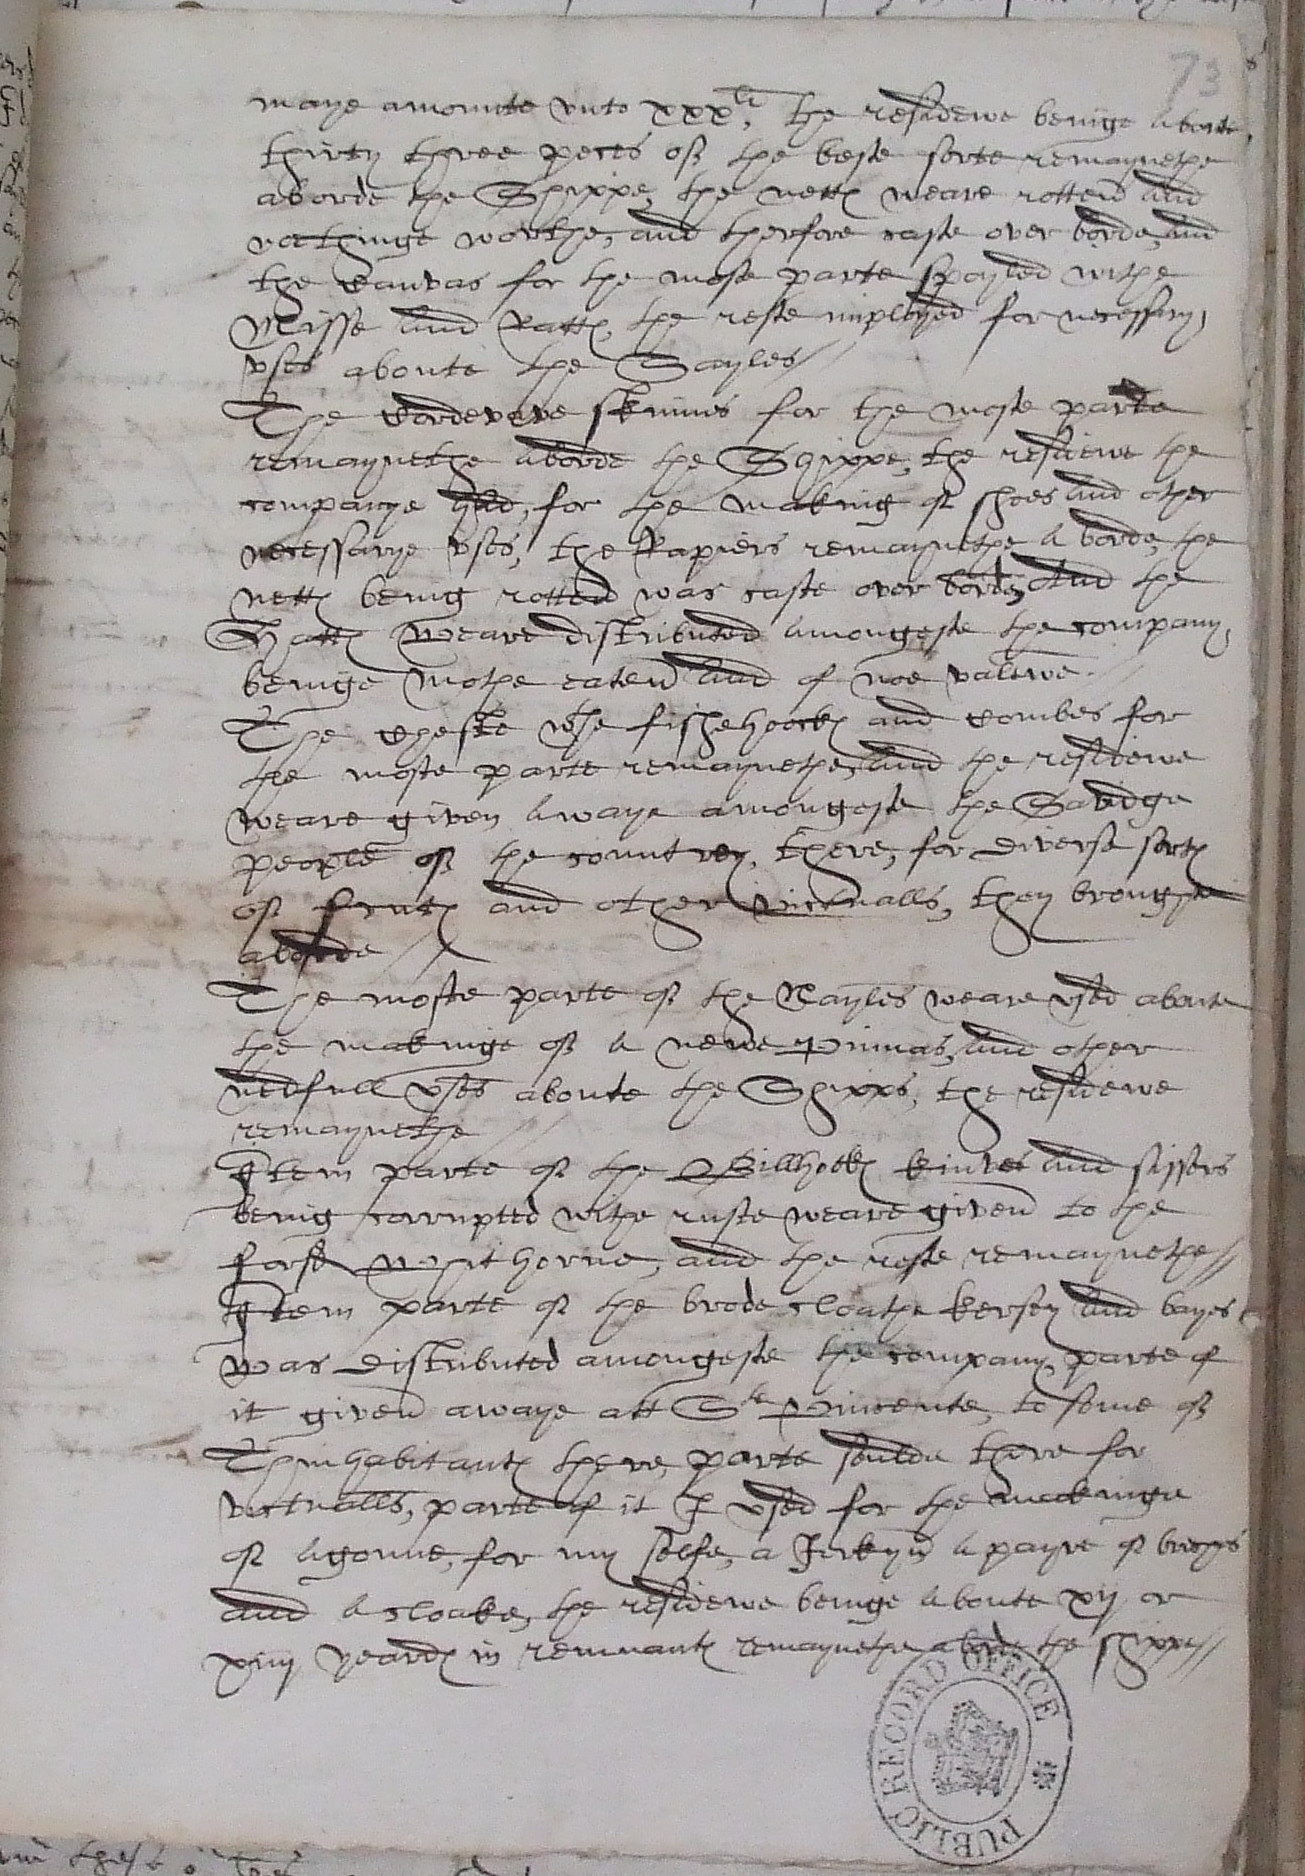 73
maye amounte vnto xxxli, the residewe beinge aboute
thirty three peces of the beste sorte remaynethe
aborde the Shippe, the nettes weare rotten and
nothinge worthe, and therfore caste over borde, and
the Canvas for the moste parte spoyled withe
Misse and Rattes, the reste imployed for necessary
vses aboute the Sayles
The Cordevave skinns for the moste parte
remaynethe aborde the Shippe, the residewe the
companye had, for the making of shoes and other
necessarye vses, the Rapiers remaynethe aborde, the
nettes being rotten was caste over borde, And the
Hattes weare distributed amongeste the company,
beinge mothe eaten and of noe valewe.
The Cheste wthe fishehoockes and Combes for
the moste parte remaynethe, and the residewe
weare given awaye amongeste the Savidge
people of the countrey, there, for diverse sortes
of frutes and other victualls, they broughte
aborde
The moste parte of the Nayles weare vsed aboute
the makinge of a newe Pinnas, and other
nedfull vses aboute the Shipps, the residewe
remaynethe
Item parte of the Billhockes knives and sissers
being corrupted withe ruste weare given to the
forsd Whithorne, and the reste remaynethe
Item parte of the brode cloathe kersey and bayes
was distributed amongeste the company, parte of
it given awaye att Ste Vincente, to some of
Thinhabitantes there, parte soulde there for
victualls, parte of it I vsed for the mackinge
of a gowne, for my selfe, a Jerkyn a payre of breches
and a cloake, the residewe beinge aboute xij or
xiiij yeardes in remnantes remaynethe aborde the shippe
PUBLIC RECORD OFFICE